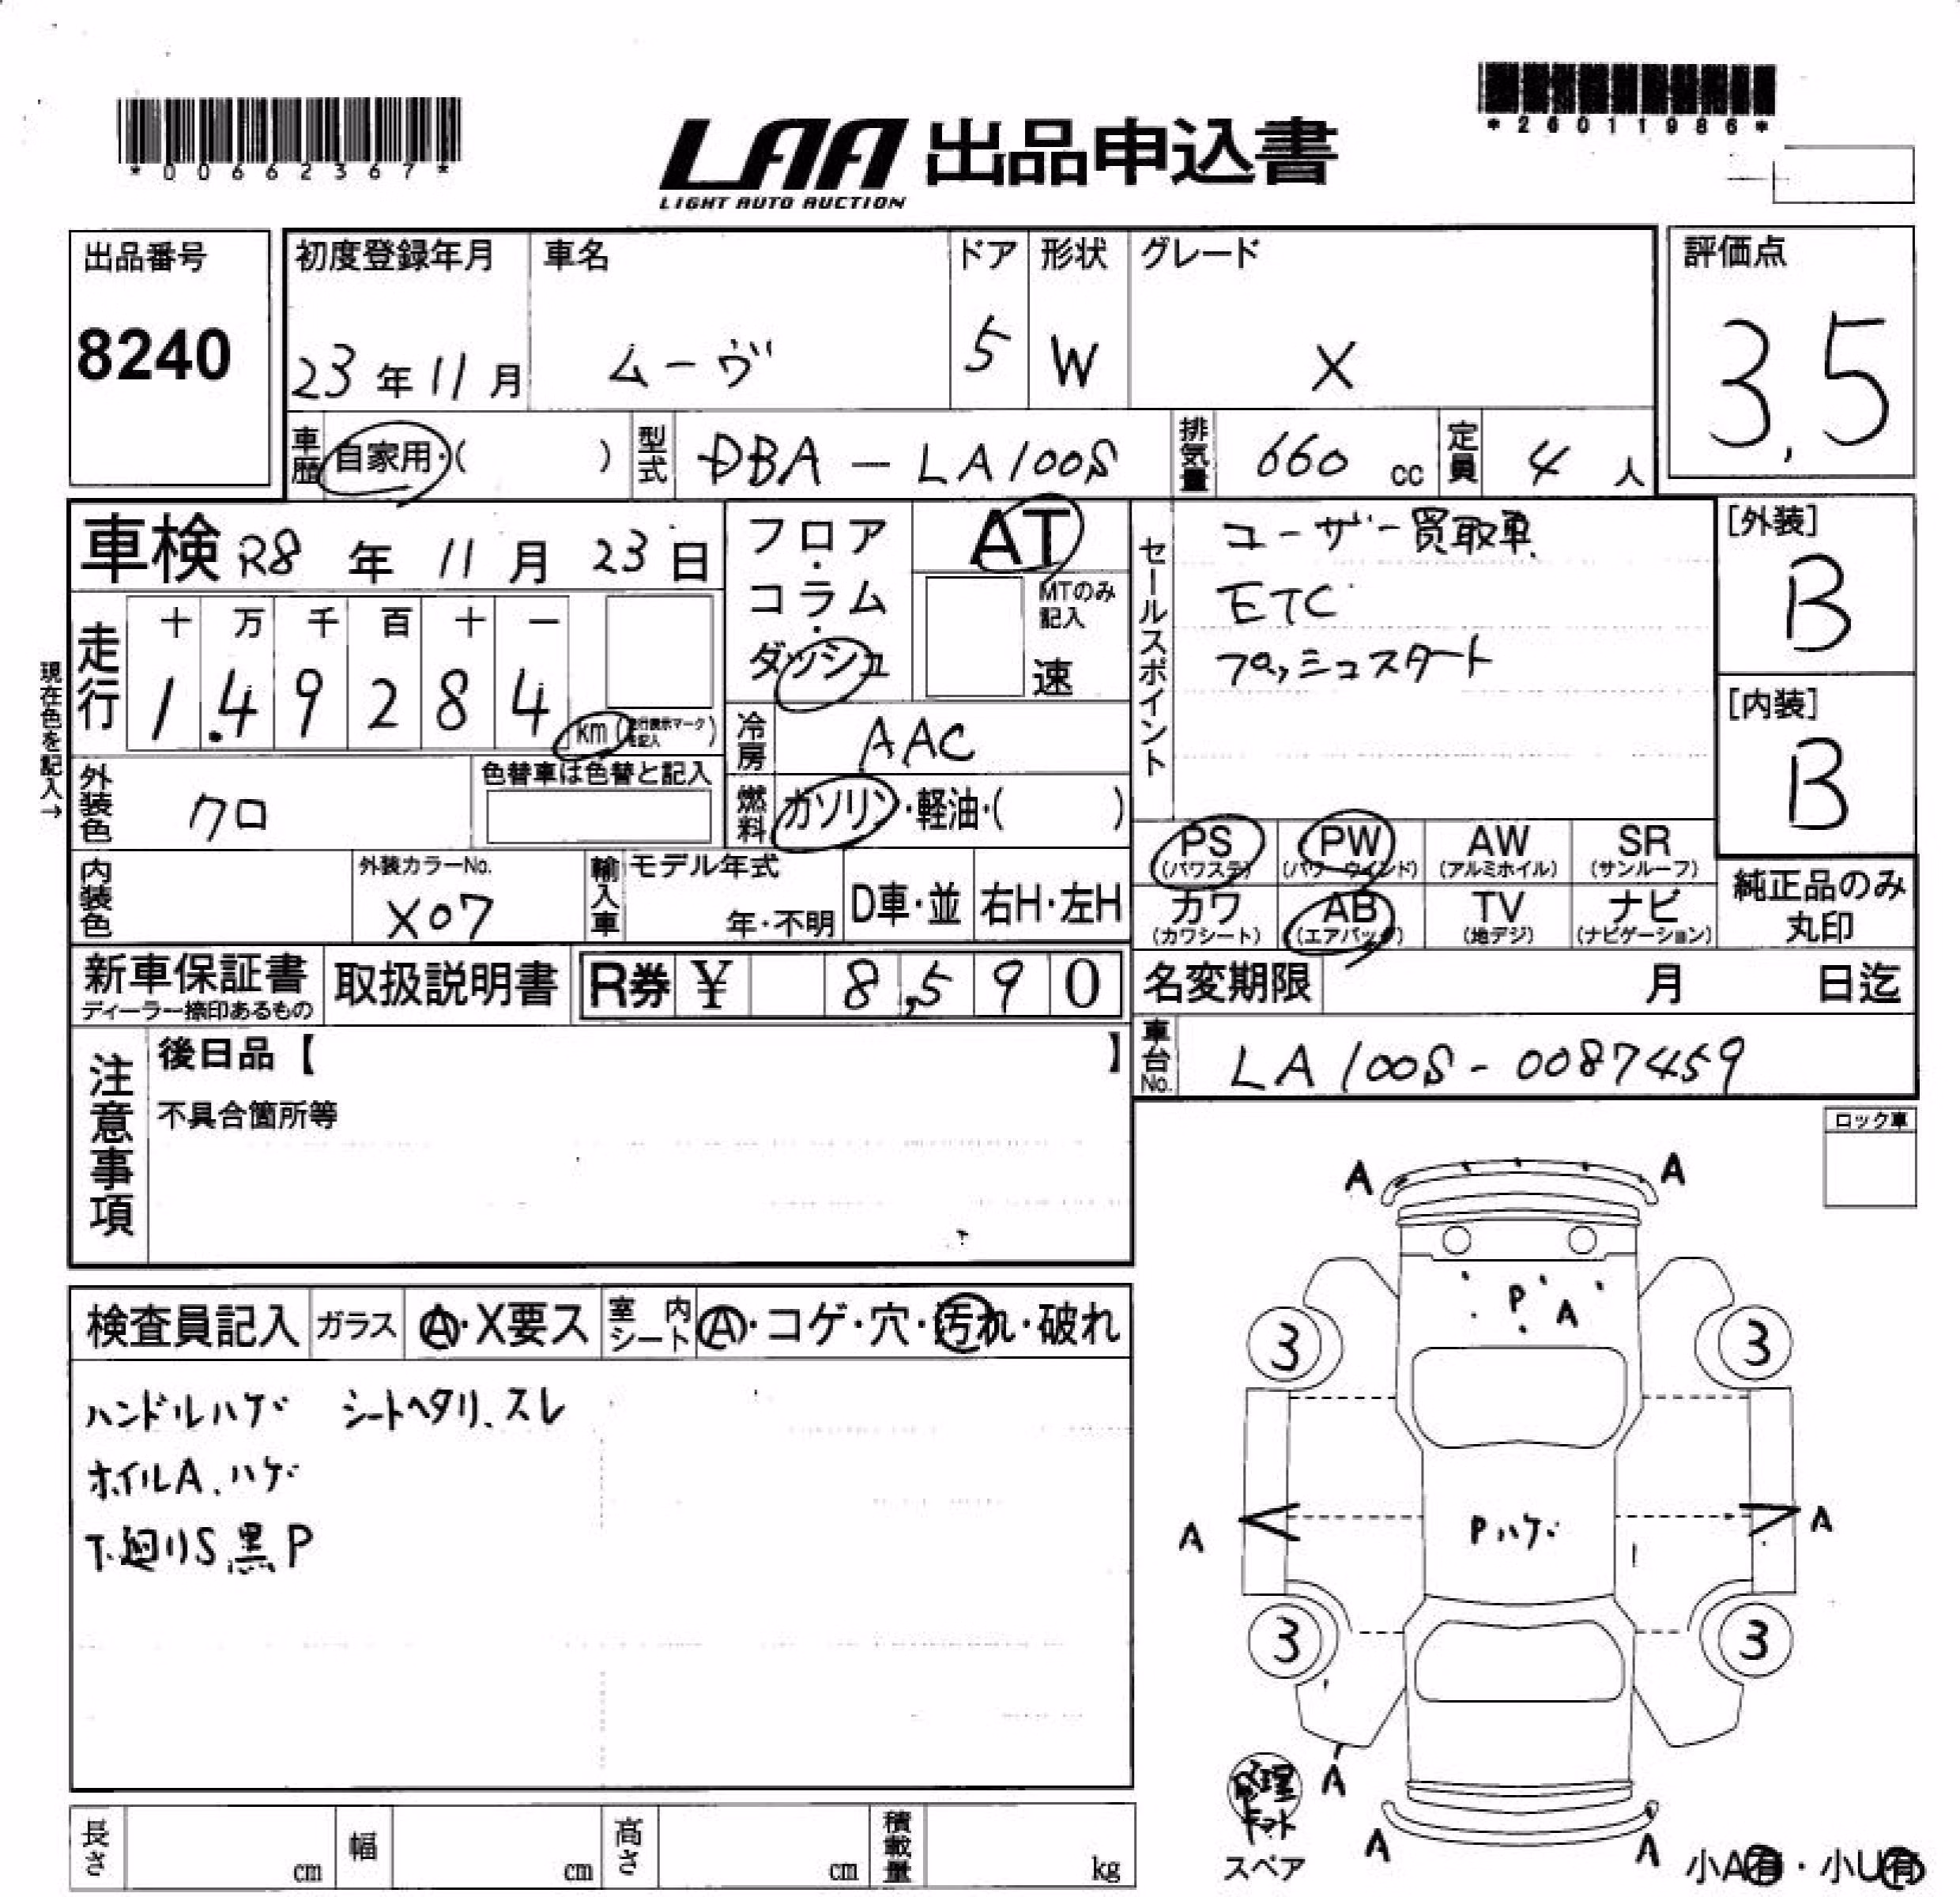 *00662367*
LAA 出品申込書
LIGHT AUTO AUCTION
*26011986*
出品番号
8240
初度登録年月
23年11月
車名
ムーヴ
ドア
5
形状
W
グレード
X
評価点
3,5
車歴
自家用・( )
型式
DBA-LA100S
排気量
660 cc
定員
4 人
車検 R8 年 11 月 23 日
フロア・コラム・ダッシュ
AT
MTのみ記入
速
セールスポイント
ユーザー買取車
ETC
プッシュスタート
[外装]
B
[内装]
B
現在色を記入→
走行
十 万 千 百 十 一
1.4 9 2 8 4
km
冷房
AAC
外装色
クロ
色替車は色替と記入
燃料
ガソリン・軽油・( )
PS
(パワステ)
PW
(パワーウインド)
AW
(アルミホイル)
SR
(サンルーフ)
カワ
(カワシート)
AB
(エアバッグ)
TV
(地デジ)
ナビ
(ナビゲーション)
純正品のみ
丸印
内装色
外装カラーNo.
X07
輸入車
モデル年式
年・不明
D車・並
右H・左H
新車保証書
ディーラー捺印あるもの
取扱説明書
R券 ¥ 8,590
名変期限 月 日迄
車台No.
LA100S-0087459
注意事項
後日品【 】
不具合箇所等
ロック車
検査員記入
ガラス
A・X要ス
室内シート
A・コゲ・穴・汚れ・破れ
ハンドルハゲ シートヘタリ、スレ
ホイルA、ハゲ
下廻りS 黒P
A A
P A
3 3
A Pハゲ A
3 3
A
A A
キット
スペア
小A有・小U有
長さ cm
幅 cm
高さ cm
積載量 kg